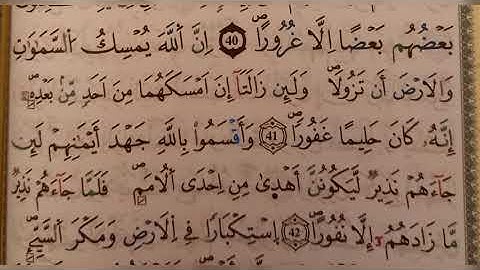 بَعْضُهُم بَعْضًا اِلَّا غُرُورًا ۝40 اِنَّ اللّٰهَ يُمْسِكُ السَّمٰوَاتِ
وَالْاَرْضَ أَن تَزُولَا وَلَئِن زَالَتَا إِنْ اَمْسَكَهُمَا مِن اَحَدٍ مِّنۢ بَعْدِهِ
إِنَّهُ كَانَ حَلِيمًا غَفُورًا ۝41 وَأَقْسَمُوا بِاللّٰهِ جَهْدَ أَيْمَٰنِهِمْ لَئِن
جَاءَهُمْ نَذِيرٌ لَّيَكُونُنَّ أَهْدَىٰ مِن اِحْدَى الْاُمَمِ فَلَمَّا جَاءَهُمْ نَذِيرٌ
مَّا زَادَهُمُ إِلَّا نُفُورًا ۝42 اِسْتِكْبَارًا فِي الْاَرْضِ وَمَكْرَ السَّيِّئِ